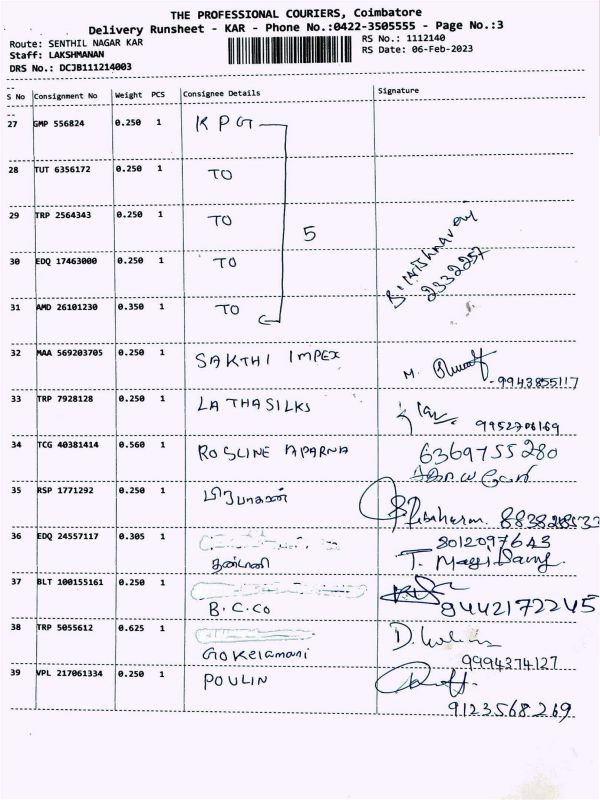 THE PROFESSIONAL COURIERS, Coimbatore
Delivery Runsheet - KAR - Phone No.:0422-3505555 - Page No.:3
Route: SENTHIL NAGAR KAR
RS No.: 1112140
Staff: LAKSHMANAN
RS Date: 06-Feb-2023
DRS No.: DCJB111214003
S No Consignment No Weight PCS Consignee Details Signature
27 GMP 556824 0.250 1 K P G
28 TUT 6356172 0.250 1 TO
29 TRP 2564343 0.250 1 TO
5
30 EDQ 17463000 0.250 1 TO
2332257
31 AMD 26101230 0.350 1 TO
32 MAA 569203705 0.250 1 SAKTHI IMPEX M.
9943855117
33 TRP 7928128 0.250 1 LATHASILKS
34 TCG 40381414 0.560 1 ROSLINE APARNA 6369755280
35 RSP 1771292 0.250 1
36 EDQ 24557117 0.305 1 8012097643
T.
37 BLT 100155161 0.250 1
B.C.CO 9442172245
38 TRP 5055612 0.625 1 D.
Gokelamani 9994374127
39 VPL 217061334 0.250 1 POULIN
9123568269